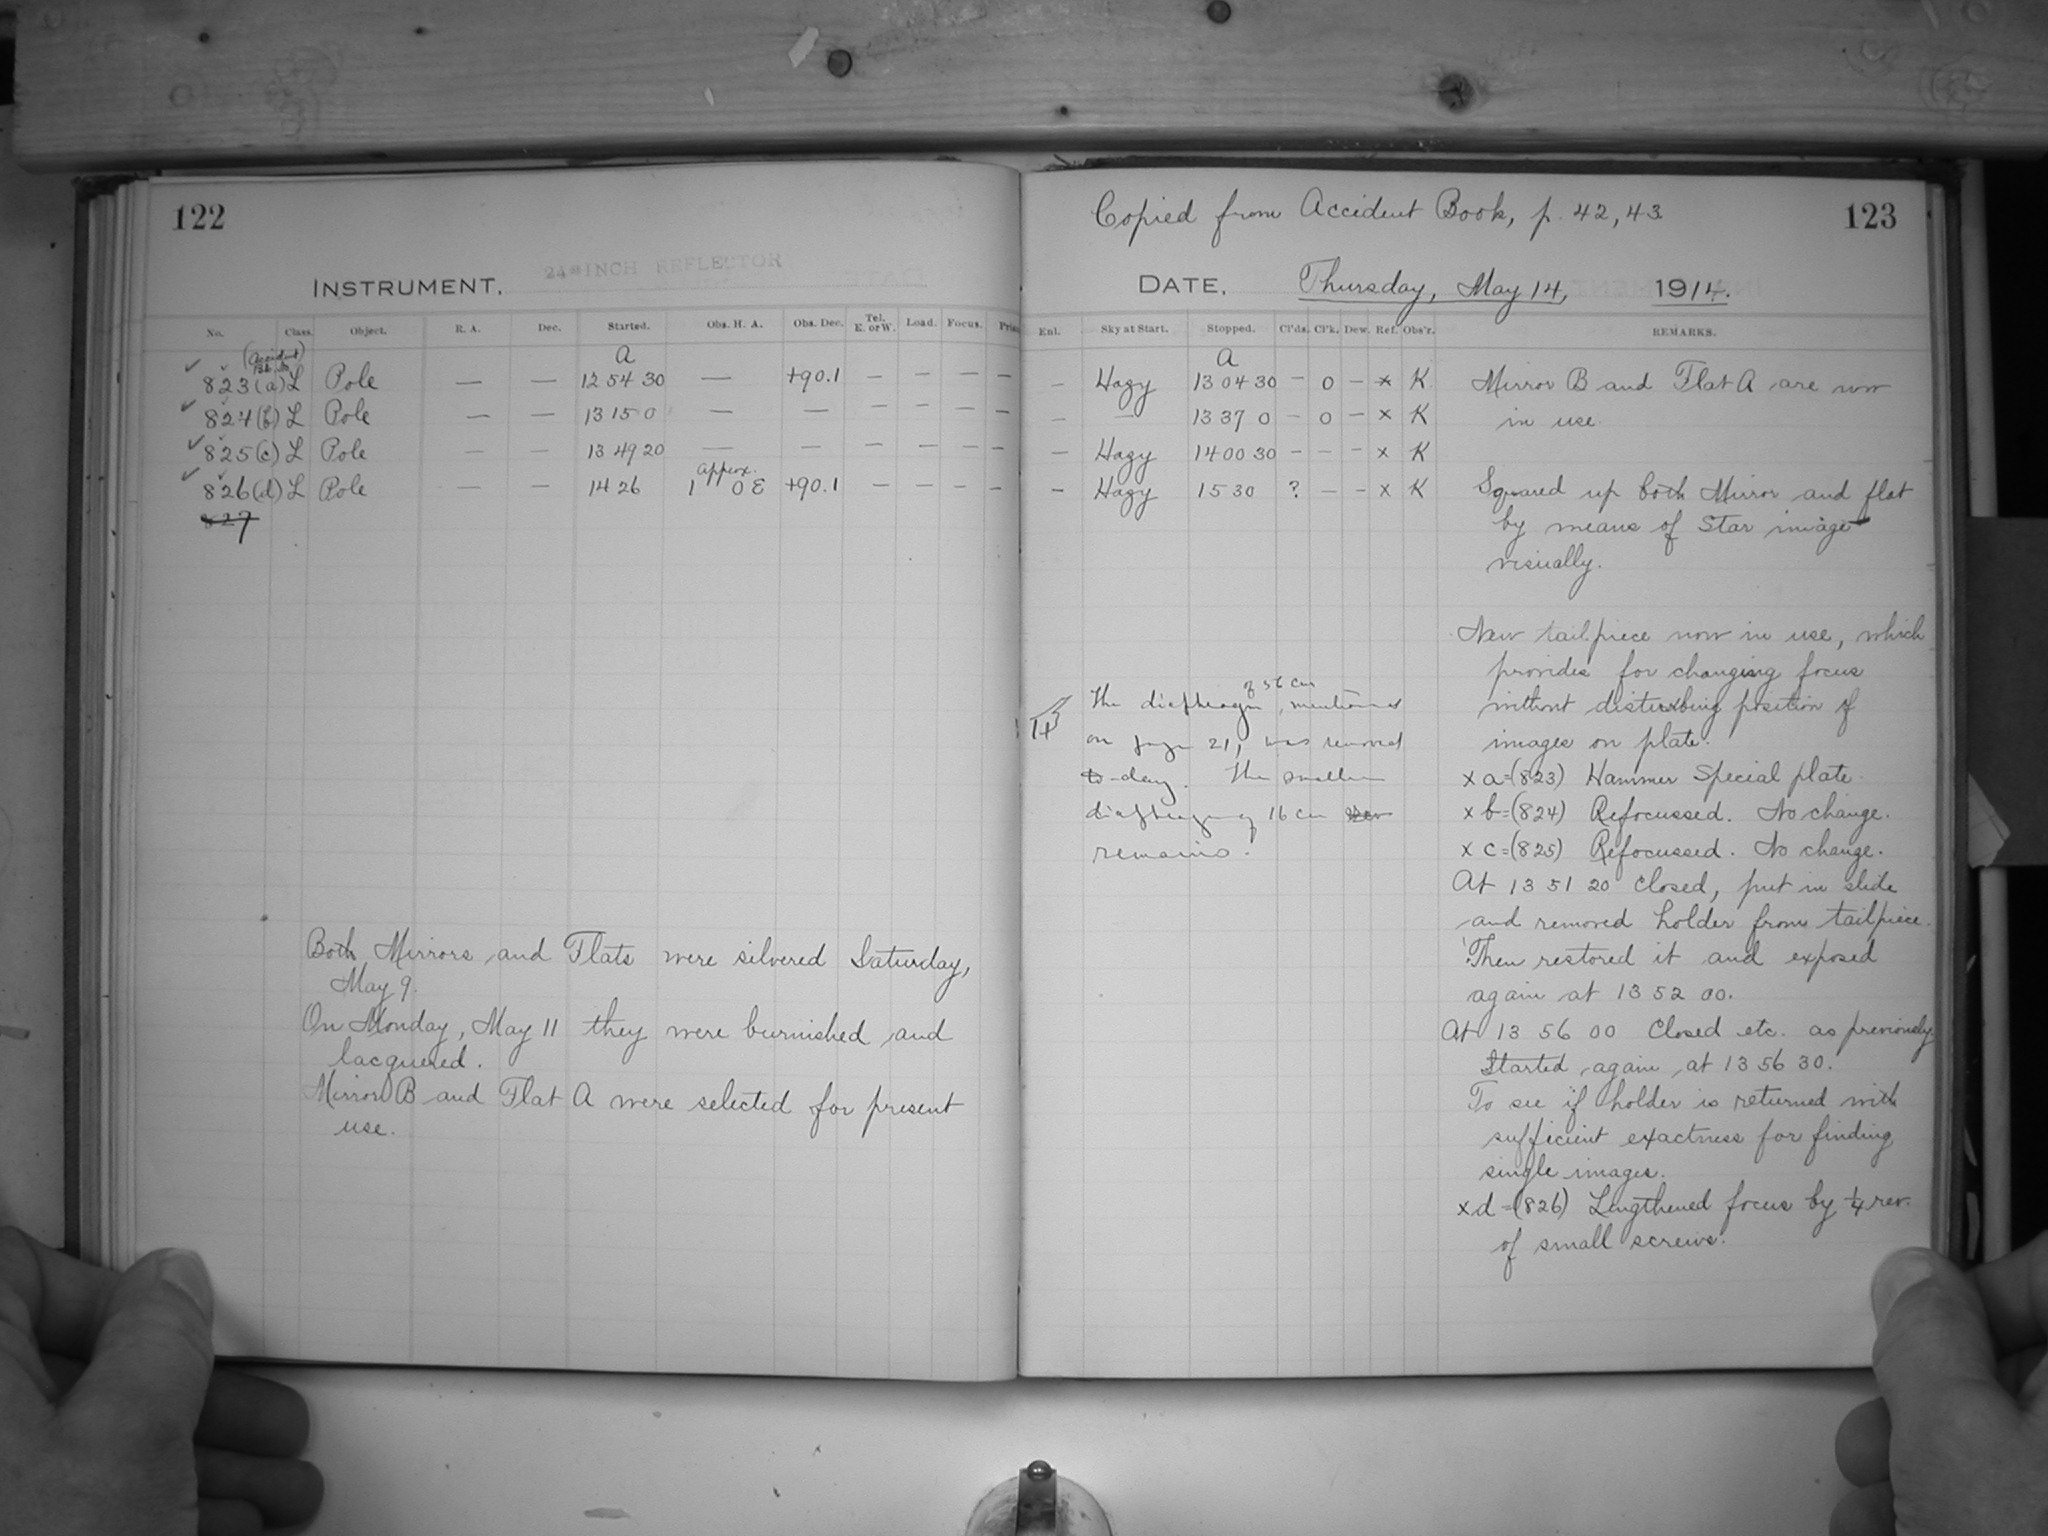 122
24-INCH REFLECTOR
INSTRUMENT.
No. Class. Object. R. A. Dec. Started. Obs. H. A. Obs. Dec. Tel. E. or W. Load. Focus.
(Accident Bk. No.) A
823(a) L Pole — — 12 54 30 — +90.1 — — — —
824(b) L Pole — — 13 15 0 — — — — — —
825(c) L Pole — — 13 49 20 — — — — —
approx.
826(d) L Pole — — 14 26 1 0 E +90.1 — — — —
827
Both Mirrors and Flats were silvered Saturday,
May 9.
On Monday, May 11 they were burnished and
lacquered.
Mirror B and Flat A were selected for present
use.
Copied from Accident Book, p. 42, 43
123
DATE. Thursday, May 14, 1914.
Enl. Sky at Start. Stopped. Cl'ds. Cl'k. Dew. Ref. Obs'r. REMARKS.
A
— Hazy 13 04 30 — 0 — x K Mirror B and Flat A are now
— — 13 37 0 — 0 — x K in use.
— Hazy 14 00 30 — — — x K
— Hazy 15 30 ? — — x K Squared up both Mirror and flat
by means of Star image
visually.
New tailpiece now in use, which
provides for changing focus
without disturbing position of
images on plate.
x a=(823) Hammer Special plate.
x b=(824) Refocussed. No change.
x c=(825) Refocussed. No change.
At 13 51 20 closed, put in slide
and removed holder from tailpiece.
Then restored it and exposed
again at 13 52 00.
At 13 56 00 Closed etc. as previously
Started again at 13 56 30.
To see if holder is returned with
sufficient exactness for finding
single images.
x d=(826) Lengthened focus by 1/4 rev.
of small screws.
14
of 56 cm
The diaphragm, mentioned
on page 21, was removed
to-day. The smaller
diaphragm of 16 cm
remains.